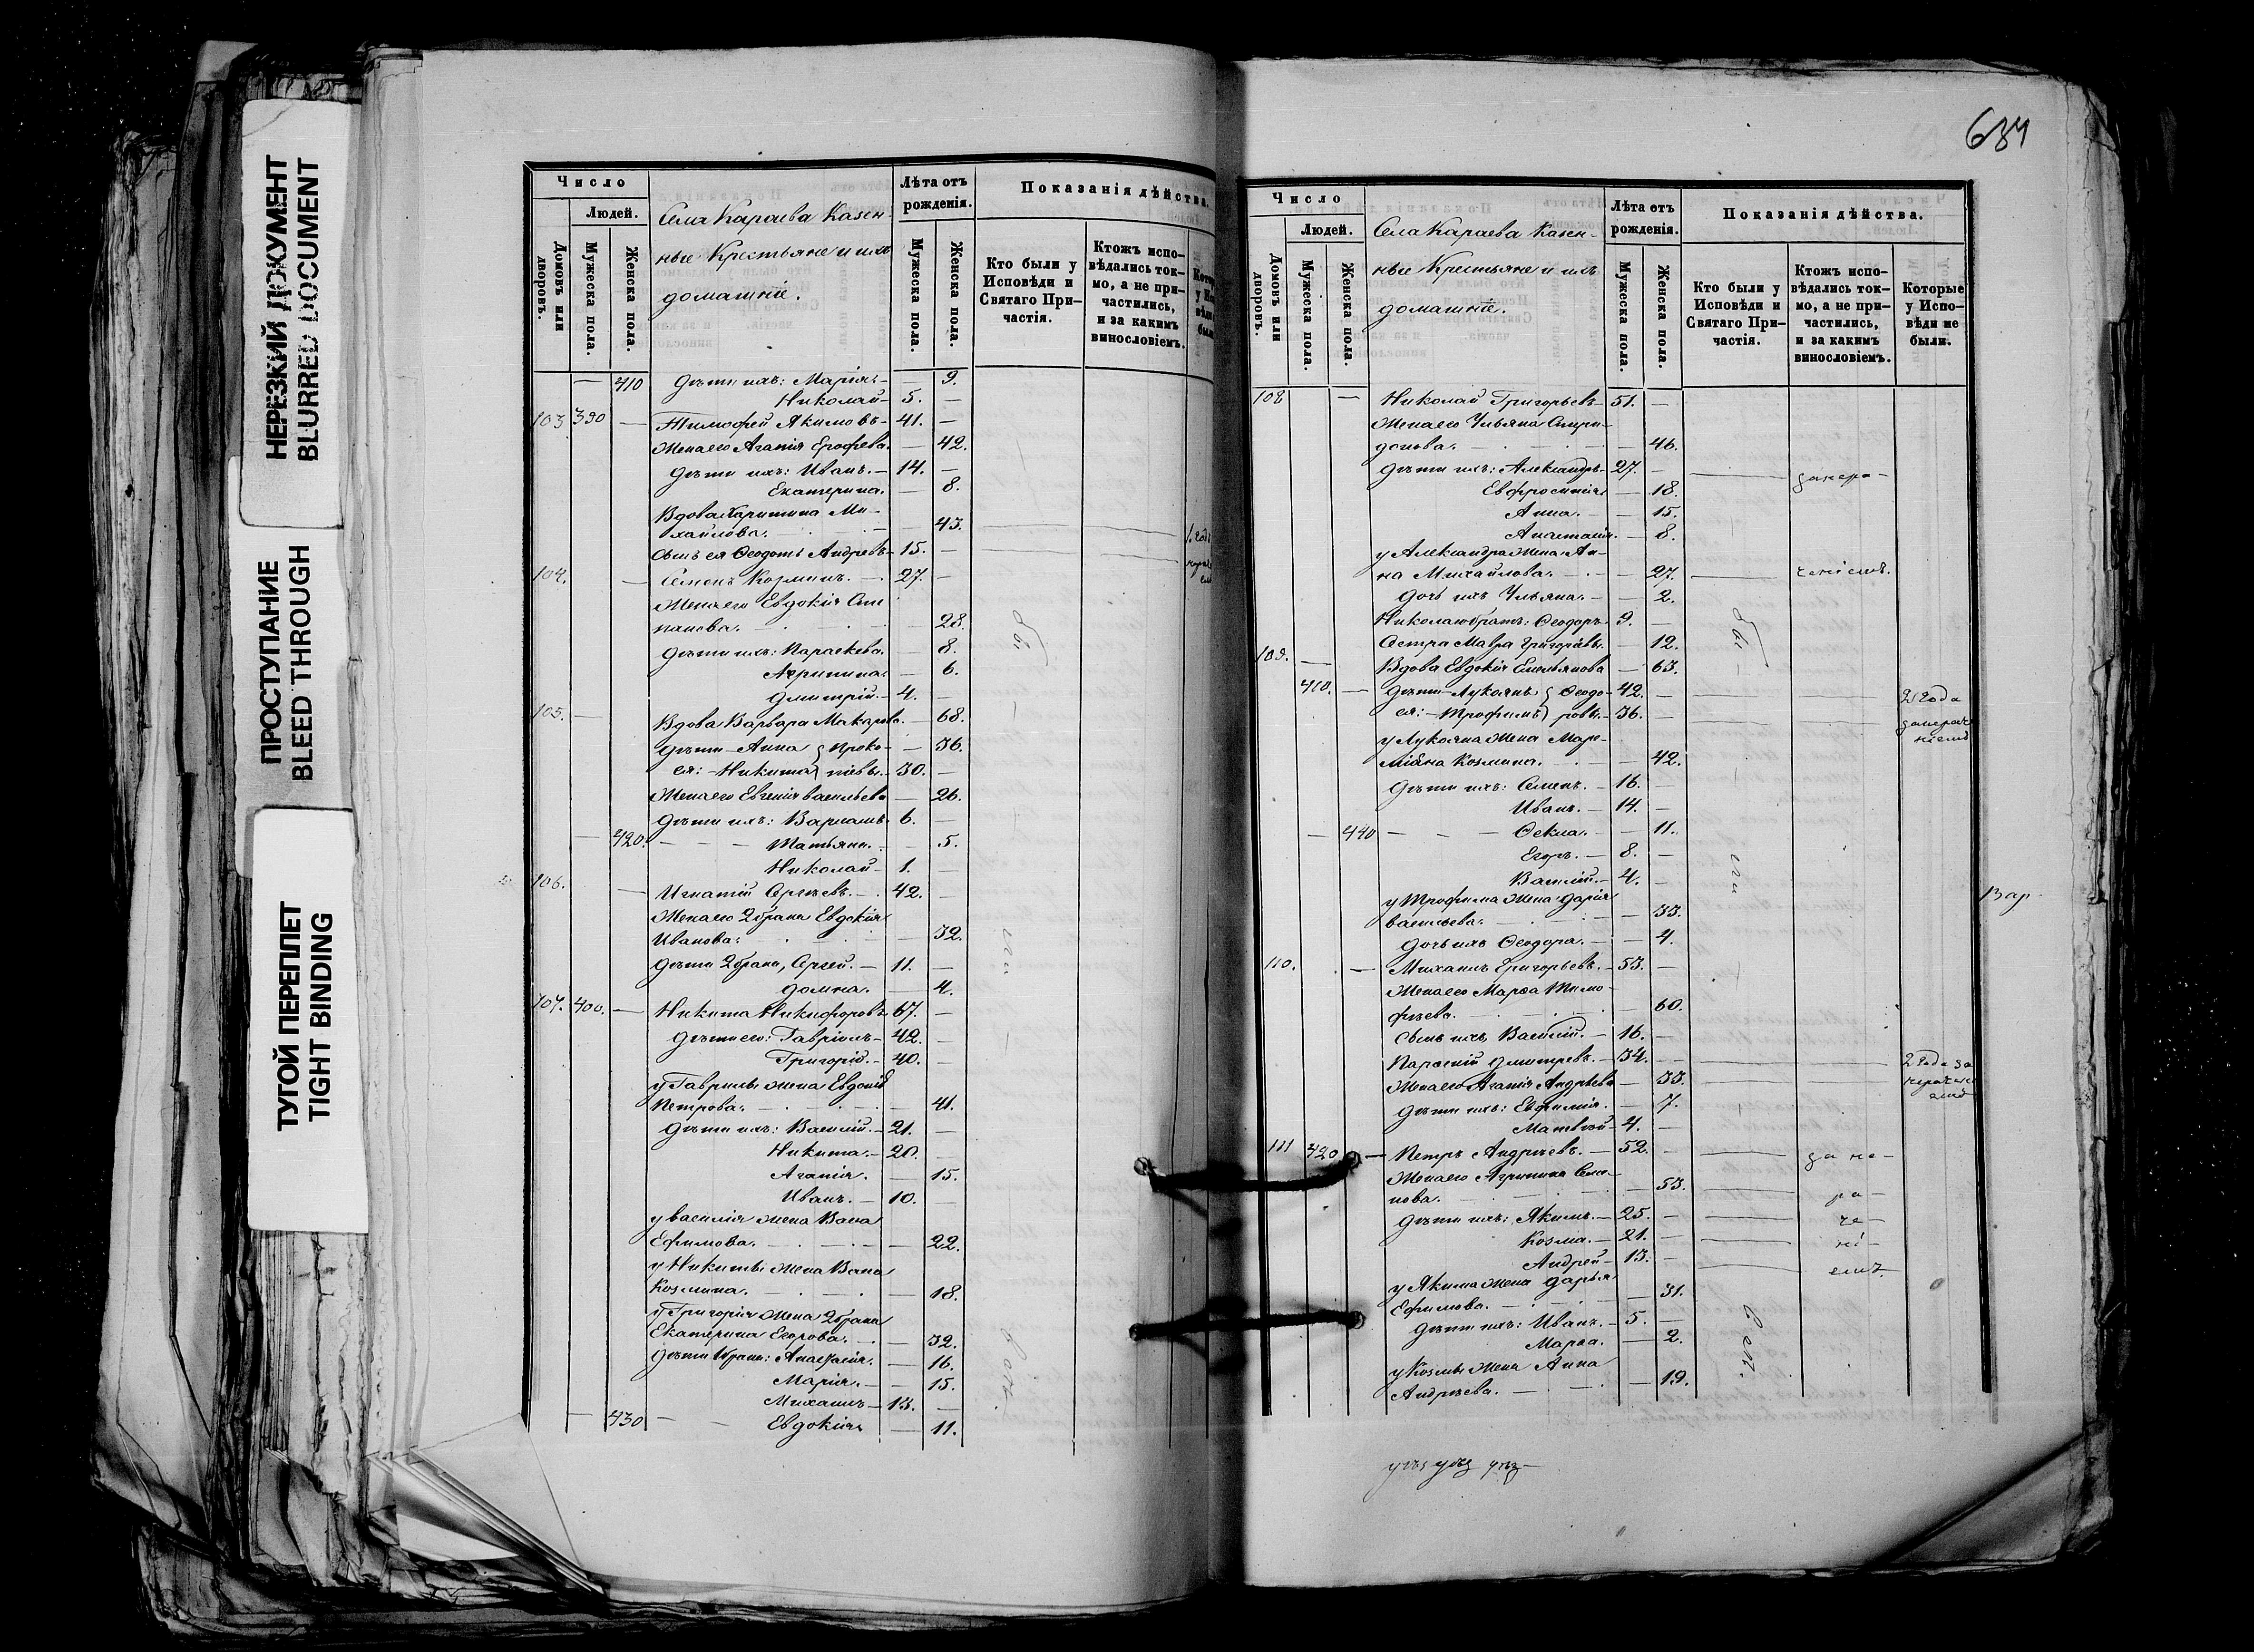 НЕРЕЗКИЙ ДОКУМЕНТ
BLURRED DOCUMENT
ПРОСТУПАНИЕ
BLEED THROUGH
ТУГОЙ ПЕРЕПЛЕТ
TIGHT BINDING
Число
Людей.
Домовъ или дворовъ.
Мужеска пола.
Женска пола.
Села Караева Казен-
ные Крестьяне и ихъ
домашніе.
Лѣта отъ
рожденія.
Мужеска пола.
Женска пола.
Показанія дѣйства.
Кто были у
Исповѣди и
Святаго При-
частія.
Ктожъ испо-
вѣдались ток-
мо, а не при-
частились,
и за какимъ
винословіемъ.
— 410 Дѣти ихъ: Марія — 9.
Николай — 5. —
103. 390 — Тимофей Якимовъ — 41. —
Жена его Агапія Ерофева. — 42.
Дѣти ихъ: Иванъ. — 14. —
Екатерина. — 8.
Вдова Харитина Ми-
хайлова. — 43.
Сынъ ея Ѳеодотъ Андреевъ — 15. —
104. — Семенъ Козминъ. — 27. —
Жена его Евдокія Сте
панова. — 28.
Дѣти ихъ: Параскева. — 8.
Агрипина. — 6.
Дмитрій. — 4. —
105. — Вдова Варвара Макарова. — 68.
Дѣти — Анна } Проко- — 36.
ея: — Никита } піевы. — 30. —
Жена его Евгенія Васильева — 26.
Дѣти ихъ: Варлаамъ. 6. —
— 420. — Татьяна. — 5.
Николай — 1. —
106. — Игнатій Сергѣевъ. — 42. —
Жена его 2 брака Евдокія
Иванова. — 32.
Дѣти 2 брака, Сергей. — 11. —
Домна. — 4.
107. 400. — Никита Никифоровъ 67. —
Дѣти его: Гавріилъ — 42. —
Григорій. — 40. —
у Гаврилы жена Евдокія
Петрова. — 41.
Дѣти ихъ: Василій. — 21. —
Никита. — 20. —
Агапія. — 15.
Иванъ. — 10. —
у Василія жена Васса
Ефимова. — 22.
у Никиты жена Васса
Козмина. — 18.
у Григорія жена 2 брака
Екатерина Егорова. — 32.
Дѣти 1 брака: Анастасія. — 16.
Марія. — 15.
Михаилъ — 13. —
— 430 — Евдокія — 11.
бы
ли
всѣ.
634
Число
Людей.
Домовъ или дворовъ.
Мужеска пола.
Женска пола.
Села Караева Казен-
ные Крестьяне и ихъ
домашніе.
Лѣта отъ
рожденія.
Мужеска пола.
Женска пола.
Показанія дѣйства.
Кто были у
Исповѣди и
Святаго При-
частія.
Ктожъ испо-
вѣдались ток-
мо, а не при-
частились,
и за какимъ
винословіемъ.
Которые
у Испо-
вѣди не
были.
108 — Николай Григорьевъ — 51. —
Жена его Ульяна Спири-
донова. — 46.
Дѣти ихъ: Александръ — 27. — занера-
Евфросинія — 18.
Анна. — 15.
Анастасія. — 8.
у Александра жена Ан-
на Михайлова. — 27. ченіемъ.
Дочь ихъ Ульяна. — 2.
Николаю братъ: Ѳеодоръ 9. —
Сестра Мавра Григорьев. — 12.
109. — Вдова Евдокія Емельянова — 63.
410. — Дѣти — Лукіянъ } Ѳеодо- 42. — 2 года
ея: — Трофимъ } ровы. — 36. — занерач
ніемъ
у Лукіяна жена Маре-
міана Козмина. — 42.
Дѣти ихъ: Семенъ. — 16. —
Иванъ. — 14. —
— 440 — Ѳекла. — 11.
Егоръ. — 8. —
Василій. — 4. —
у Трофима жена Дарія
Васильева. — 33.
Дочь ихъ Ѳеодора. — 4.
110. — Михаилъ Григорьевъ. — 53. —
Жена его Марѳа Тимо-
фѣева. — 60.
Сынъ ихъ Василій. — 16. —
Дмитревъ. — 34. — 2 года за
Жена его Агапія Андрѣева — 33. нераче
Дѣти ихъ: Евфимія. — 7. ніемъ
Матвѣй — 4. —
111 420 — Петръ Андрѣевъ. — 52. — за не-
Жена его Агрипина Семе-
нова. — 53. ра-
Дѣти ихъ: Якимъ. — 25. — че-
Козма. — 21. — ні-
Андрей — 13. — емъ.
у Якима жена Дарья
Ефимова. — 31.
Дѣти ихъ: Иванъ. — 5. —
Марѳа. — 2.
у Козмы жена Анна
Андрѣева. — 19.
бы
ли
всѣ.
Вар